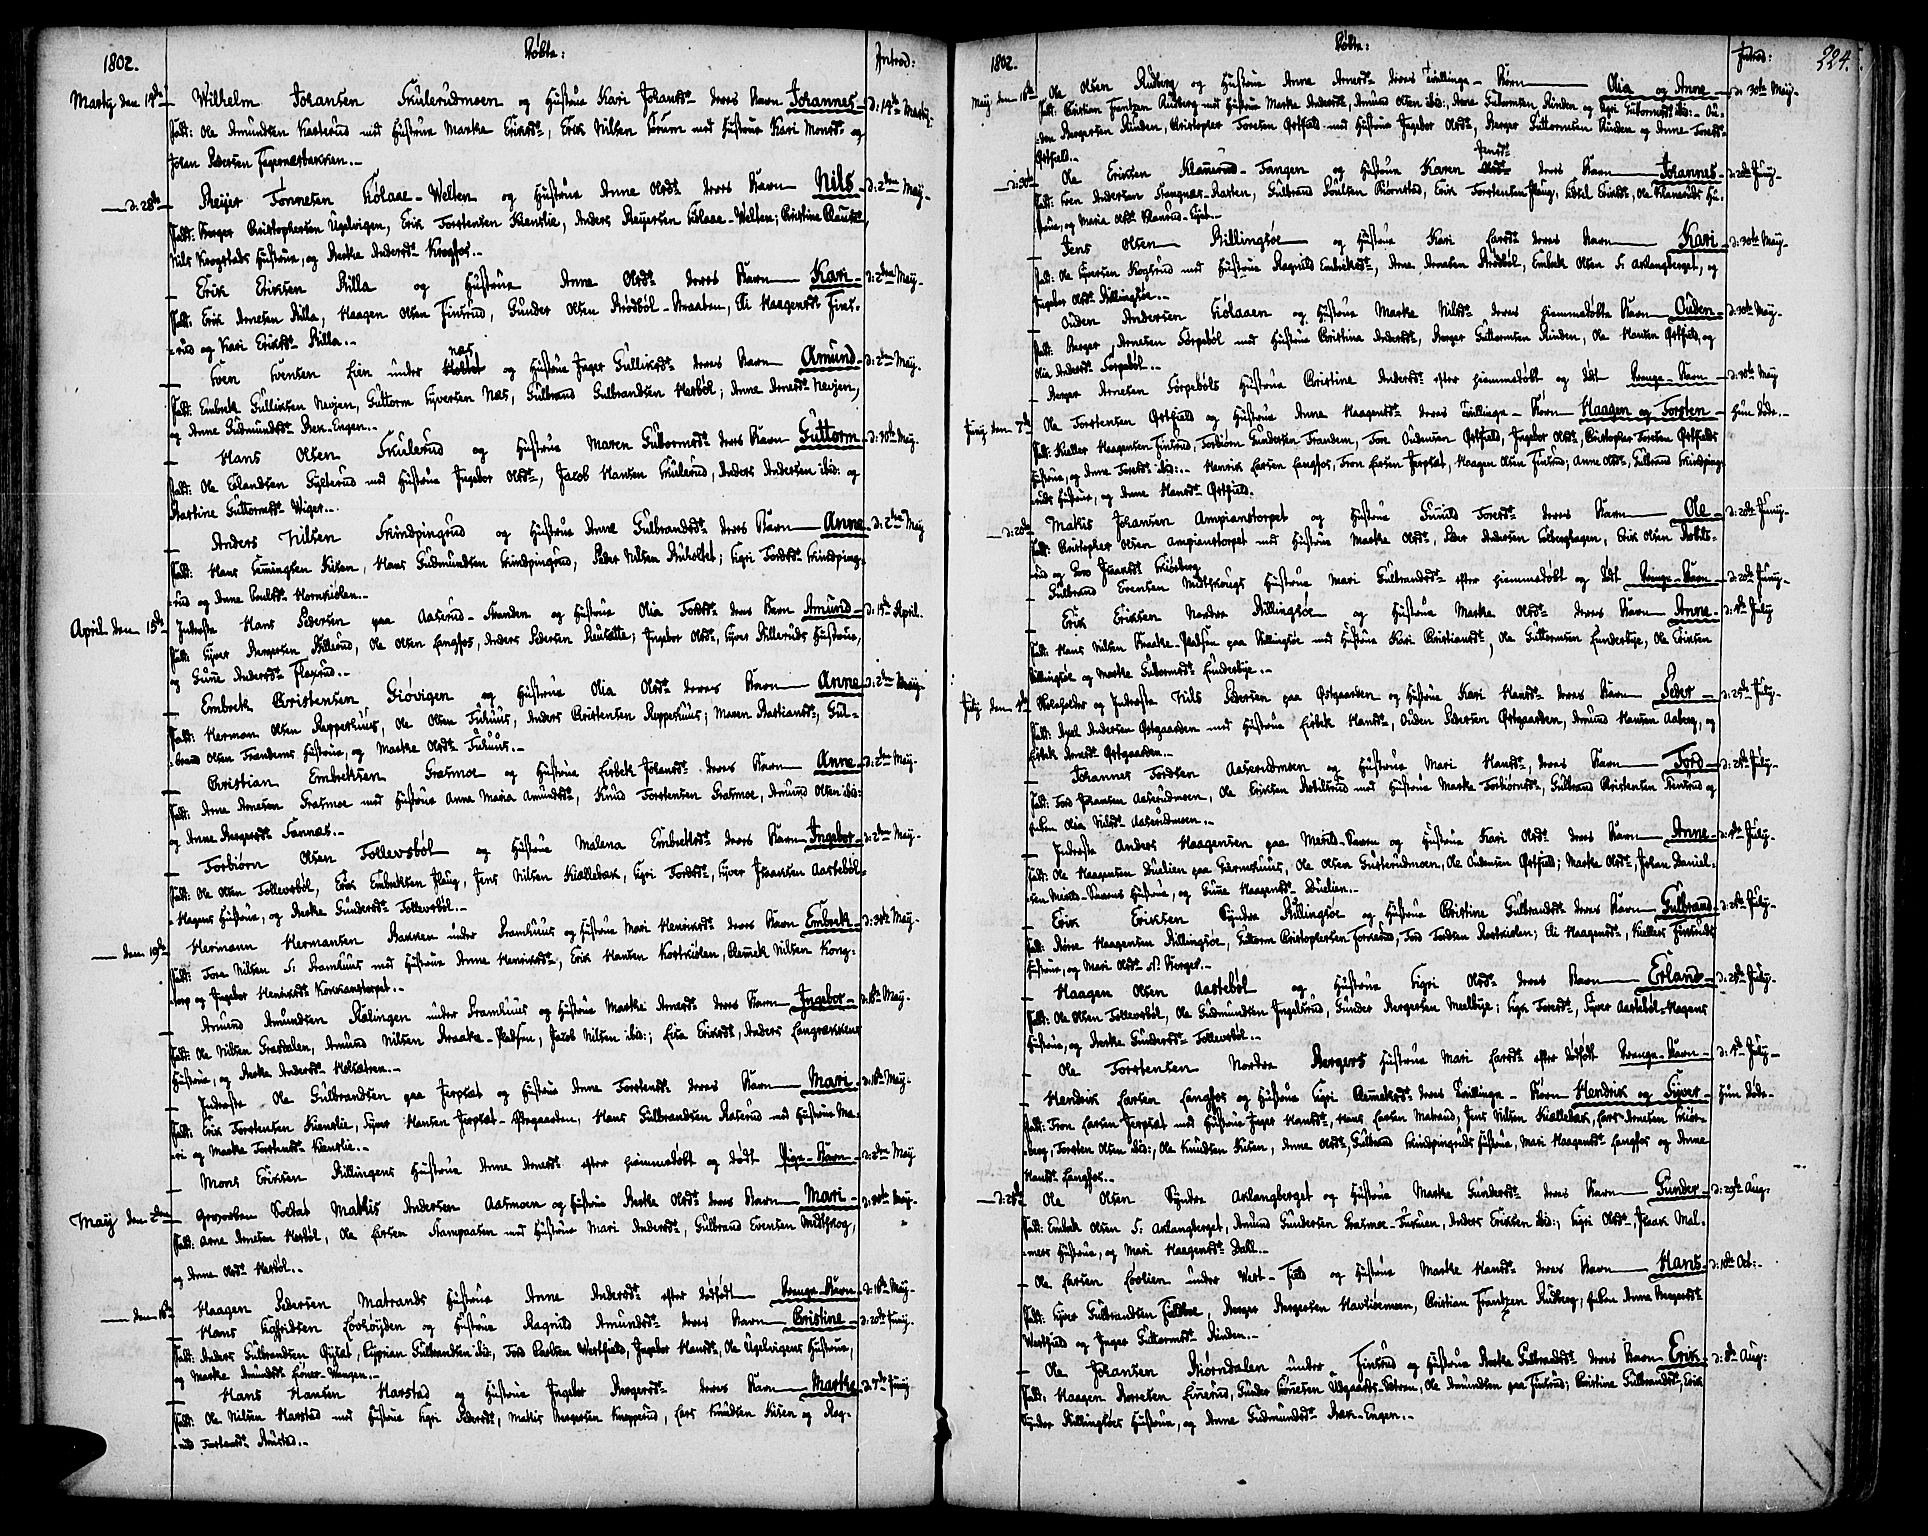 1802.
Døbte:
Introd:
Martij den 14de
Wilhelm Johansen Skulerudmoen og Hustrue Kari Johansdr deres Barn Johannes
d: 14de Martij
Fadd: Ole Amundsen Kaaterud med Hustrue Marthe Eriksdr, Erik Nilsen Sorum med Hustrue Kari Monsdr og
Johan Pedersen Fagernæsbakken.
d: 28de
Reijer Tonnesen Kolaae-Welten og Hustrue Anne Olsdr deres Barn Nils
d: 2den May
Fadd: Berger Christophersen Ugelvigen, Erik Torstensen Kienslie, Anders Reijersen Kolaae-Welten; Christine
Nils Krogstads Hustrue, og Berthe Andersdr Krogfos.
Erik Eriksen Rilla og Hustrue Anne Olsdr deres Barn Kari
d: 2den May
Fadd: Erik Arnesen Rilla, Haagen Olsen Finsrud, Gunder Olsen Brødbøl-Braaten, Eli Haagensdr Fins-
rud og Kari Eriksdr Rilla.
Sven Svensen Eien under næs og Hustrue Inger Gulliksdr deres Barn Amund
d: 2den May
Fadd: Embrek Gulliksen Nevjen, Guttorm Syversen Næs, Gulbrand Gulbrandsen Herbøl; Anne Arnesdr Nevjen,
og Anne Gudmundsdr Bek-Engen.
Hans Olsen Skulerud og Hustrue Maren Guttormsdr deres Barn Guttorm
d: 30te May
Fadd: Ole Erlandsen Gylterud med Hustrue Ingebor Olsdr, Jacob Hansen Skulerud, Anders Andersen ibid: og
Martine Guttormsdr Wiger.
Anders Nilsen Skindpingrud og Hustrue Anne Gulbrandsdr deres Barn Anne
d: 2den May
Fadd: Hans Hemingsen Kisen, Hans Gudmundsen Skindpingrud, Peder Nilsen, Sigri Tordsdr Skindping-
rud og Anne Poulsdr Hornkiølen.
April den 15de
Indroste Hans Pedersen paa Aaserud-Stranden og Hustrue Olia Tordsdr deres Barn Amund
d: 15de April.
Fadd: Syver Bergersen Rillerud, Ole Olsen Langfos, Anders Pedersen; Ingebor Olsdr, Syver Rilleruds Hustrue,
og Gune Andersdr Flaxrud.
Embrek Christensen Giøvigen og Hustrue Olia Olsdr deres Barn Anne
d: 2den May
Fadd: Herman Olsen Ropperhuus, Ole Olsen Fuhuus, Anders Christensen Ropperhuus; Maren Bastiansdr, Gul-
brand Olsen Trandems Hustrue, og Marthe Olsdr Fuhuus.
Christian Embreksen Grasmoe og Hustrue Lisbek Johansdr deres Barn Anne
d: 2den May
Fadd: Arne Arnesen Grasmoe med Hustrue Anne Maria Amundsdr, Knud Torstensen Grasmoe, Amund Olsen ibid:
og Anne Bergersdr Sannæs.
Torbiørn Olsen Tollevsbøl og Hustrue Malena Embreksdr deres Barn Ingebor
d: 2den May
Fadd: Ole Olsen Tollevsbøl, Erik Embreksen Haug, Jens Nilsen Kiællebæk, Sigri Tordsdr, Syver Isaaksen Aastebøl-
Hagens Hustrue, og Berthe Gundersdr Tollevsbøl.
den 19de
Hermann Hermansen Bakken under Bramhuus og Hustrue Mari Henriksdr deres Barn Embrek
d: 30te May
Fadd: Tore Nilsen S: Bramhuus med Hustrue Anne Henriksdr, Erik Hansen Kortkiølen, Clemek Nilsen Kong-
torp og Ingebor Henriksdr Korrianstorpet.
Amund Amundsen Kalingen under Bramhuus og Hustrue Marthe Arnesdr deres Barn Ingebor
d: 16de May
Fadd: Ole Nilsen Grasdalen, Amund Nilsen Braate-Pladsen, Jacob Nilsen ibid:; Lisa Eriksdr, Anders Langræktens
Hustrue, og Berthe Andersdr Holsætren.
Indroste Ole Gulbrandsen paa Jerpsæt og Hustrue Anne Torstensdr deres Barn Mari
d: 16de May
Fadd: Erik Torstensen Kienslie, Syver Hansen Jerpsæt-Østgaarden, Hans Gulbrandsen Aaserud med Hustrue Ma-
ri og Marthe Torstensdr Kienslie.
Mons Eriksen Rillingens Hustrue Anne Arnesdr efter hiemmedøbt og dødt Pige-Barn
d: 2den May
May den 2den
Gevorben Soldat Mathis Andersen Aasmoen og Hustrue Berthe Olsdr deres Barn Mari
d: 30te May
Fadd: Arne Arnesen Herbøl, Ole Larsen Stampsaaten med Hustrue Mari Andersdr, Gulbrand Evensen Midtskog,
og Anne Olsdr Herbøl.
den 16de
Haagen Pedersen Matrands Hustrue Anne Andersdr efter dødfødt Drenge-Barn
d: 16de May
Hans Sigfridsen Løvhøyden og Hustrue Ragnild Amundsdr deres Barn Christine
d: 20de Junij
Fadd: Anders Gulbrandsen Rysæt, Ciprian Gulbrandsen ibid, Tord Poulsen Westfield, Ingebor Hansdr, Ole Ugelvigens Hustrue,
og Marthe Amundsdr Lier-Wangen.
Hans Hansen Harstad og Hustrue Ingebor Bergersdr deres Barn Marthe
d: 7de Junij
Fadd: Ole Nilsen Harstad med Hustrue Sigri Pedersdr, Mathis Bergersen Knapperud, Lars Knudsen Kisen og Rag-
nild Torlansdr
1802.
Døbte:
Introd:
224.
May den 16de
Ole Olsen Rudberg og Hustrue Anne Arnesdr deres Tvillinge-Børn Olia og Anne
d: 30te May
Fadd: Christian Frantzen Rudberg med Hustrue Marthe Andersdr, Amund Olsen ibid:, Arne Guttormsen Runden og Sigri Guttormsdr ibid: Ou-
den Bergersen Runden, Christopher Toresen Østfield med Hustrue Ingebor Olsdr, Berger Guttormsen Runden og Anne Toresdr
Østfield.
d: 30te
Ole Eriksen Klanerud-Tangen og Hustrue Karen Jensdr deres Barn Johannes
d: 20de Junij
Fadd: Even Andersen, Gulbrand Poulsen Biørnstad, Erik Torstensen Haug, Sidsel Eriksdr, Ole Klaneruds Hu-
strue, og Maria Olsdr Klanrud-Eiet.
Jens Olsen Rillingsøe og Hustrue Kari Larsdr deres Barn Kari
d: 30te May
Fadd: Ole Syversen Kogsrud med Hustrue Ragnild Embreksdr, Arne Arnesen Brødbøl, Embrek Olsen S: Aklangberget, og
Ingebor Olsdr Rillingsøe.
Ouden Andersen Kolaaen og Hustrue Marthe Nilsdr deres hiemmedøbte Barn Ouden
d: 30te May
Fadd: Berger Arnesen Torpebøl med Hustrue Christina Andersdr, Berger Guttormsen Runden, Ole Hansen Østfield, og
Olia Andersdr Torpebøl.
Berger Arnesen Torpebøls Hustrue Christine Andersdr efter hiemmedøbt og dødt Drenge-Barn
d: 30te May
Junij den 7de
Ole Torstensen Østfield og Hustrue Anne Haagensdr deres Tvillinge-Børn Haagen og Torsten
Hun døde.
Fadd: Kieller Haagensen Finsrud, Torbiørn Gundersen Trandem, Tore Oudensen Østfield, Ingebor Olsdr, Christopher Toresen Østfields
Hustrue, og Anne Toresdr ibid:. Henrik Larsen Langfos, Tron Larsen Jerpsæt, Haagen Olsen Finsrud; Anne Olsdr, Gulbrand Skindping-
ruds Hustrue, og Anne Hansdr Østfield.
d: 20de
Mathis Johansen Ampianstorpet og Hustrue Gunild Toresdr deres Barn Ole
d: 20de Junij
Fadd: Christopher Olsen Ampianstorpet med Hustrue Marthe Olsdr, Peder Andersen Solberghagen, Erik Olsen Aabils-
rud og Isaaksdr Skiøsberg
Gulbrand Evensen Midtskougs Hustrue Mari Gulbrandsdr efter hiemmedøbt og dødt Drenge-Barn
d: 20de Junij
Erik Eriksen Nordre Rillingsøe og Hustrue Marthe Olsdr deres Barn Anne
d: 4de July
Fadd: Hans Nilsen Braate-Pladsen paa Rillingsøe med Hustrue Kari Christiansdr, Ole Guttormsen Lundersbye, Ole Eriksen
Rillingsøe og Marthe Guttormsdr Lundersbye.
July den 4de
Skoleholder og Indroste Nils Pedersen paa Østgaarden og Hustrue Kari Hansdr deres Barn Peder
d: 25de July
Fadd: Axel Andersen Østgaarden med Hustrue Lisbek Hansdr, Ouden Pedersen Østgaarden, Amund Hansen Aaberg, og
Lisbek Arnesdr Østgaarden.
Johannes Tordsen Aaserudmoen og Hustrue Mari Hansdr, deres Barn Tord
d: 25de July
Fadd: Tord Johansen Aaserudmoen, Ole Eriksen Aabilsrud med Hustrue Marthe Torbiørnsdr, Gulbrand Christensen og
Enken Olia Nilsdr Aaserudmoen.
Indroste Anders Haagensen paa Mærd-Karen og Hustrue Kari Olsdr deres Barn Anne
d: 4de July
Fadd: Ole Haagensen paa Garmshuus, Ole Olsen Gusterudmoen, Ole Oudensen Østfield; Marthe Olsdr, Johan Daniel-
sen Mærd-Karens Hustrue, og Gune Haagensdr
Erik Eriksen Syndre Rillingsøe og Hustrue Christine Gulbrandsdr deres Barn Gulbrand
d: 25de July
Fadd: Haagensen Rillingsøe, Guttorm Christophersen Torkerud, Tord Tordsen; Eli Haagensdr, Kieller Finsruds
Hustrue, og Mari Olsdr N: Berger.
Haagen Olsen Aastebøl og Hustrue Sigri Olsdr deres Barn Erland
d: 25de July
Fadd: Ole Olsen Tollevsbøl, Ole Gudmundsen Ingelsrud, Gunder Bergersen Meelbye; Sigri Toresdr, Syver Aastebøl-Hagens
Hustrue, og Berthe Gundersdr Tollevsbøl.
Ole Torstensen Nordre Bergers Hustrue Mari Larsdr efter dødfødt Drenge-Barn
d: 4de July
Hendrik Larsen Langfos og Hustrue Sigri Clemeksdr deres Tvillinge-Børn Hendrik og Syver
Hun døde.
Fadd: Tron Larsen Jerpsæt med Hustrue Inger Hansdr, Hans Larsen Matrand, Jens Nilsen Kiællebæk, Lars Arnesen Skiøs-
berg, Torsten Olsen ibid:, Ole Knudsen Kisen, Anne Olsdr, Gulbrand Skindpingruds Hustrue, Mari Haagensdr Langfos og Anne
Hansdr Langfos.
d: 25de
Ole Olsen Syndre Aklangberget og Hustrue Marthe Gundersdr deres Barn Gunder
d: 29de Aug.
Fadd: Embrek Olsen S: Aklangberget, Amund Gundersen Grasmoe-Fuhuen, Anders Eriksen ibid:, Sigri Olsdr, Isaak Mal-
mers Hustrue, og Mari Haagensdr Dall.
Ole Larsen Lovlien under West-Field og Hustrue Marthe Hansdr deres Barn Hans
d: 10de Oct:
Fadd: Syver Gulbrandsen Fieldboe, Berger Bergersen Havlidemoen, Christian Frantzen Rudberg; Enken Anne Bergersdr
Westfield og Inger Guttormsdr Runden.
Ole Johansen Biørndalen under Finsrud og Hustrue Berthe Gulbrandsdr deres Barn Erik
d: 8de Aug:
Fadd: Haagen Linerud, Gunder Udgaards-Sætren, Ole Amundsen paa Finsrud; Christine Gulbrandsdr, Erik
Syndre Rillingsøes Hustrue, og Anne Gudmundsdr Bek-Engen.